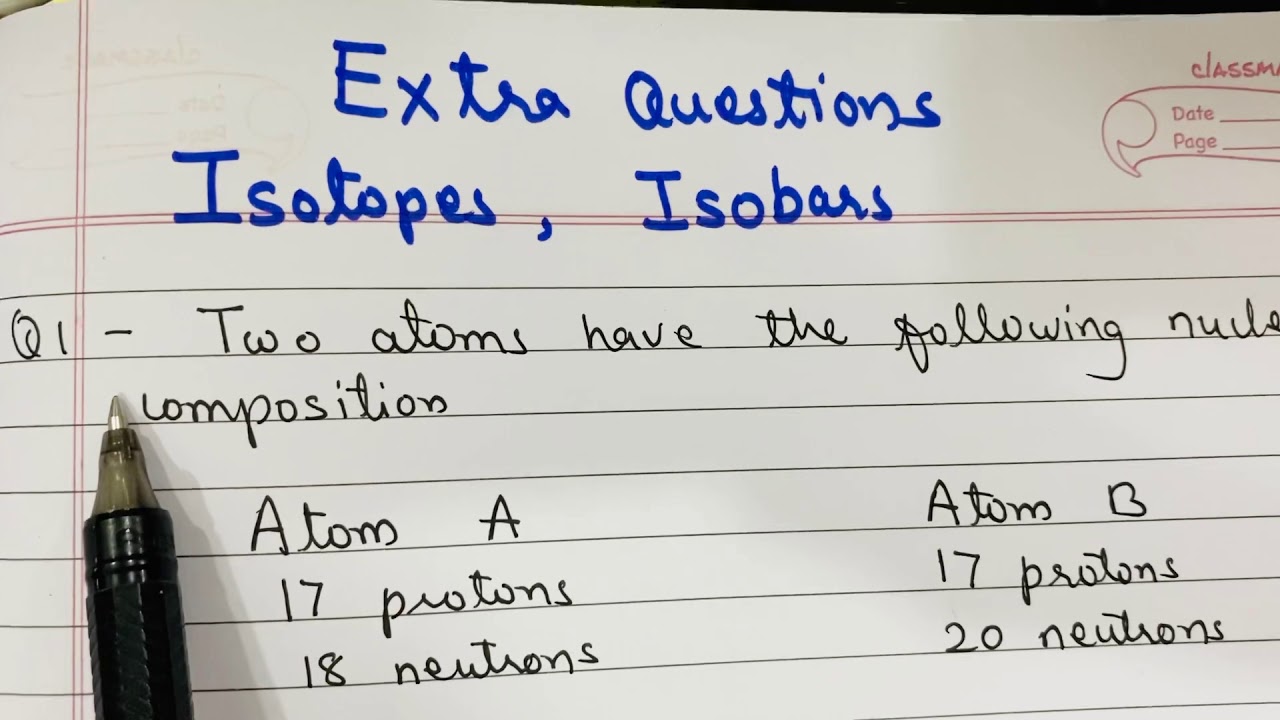 Extra Questions
classma
Date
Page
Isotopes, Isobars
Q1 - Two atoms have the following nucle
composition
Atom A
Atom B
17 protons
17 protons
18 neutrons
20 neutrons